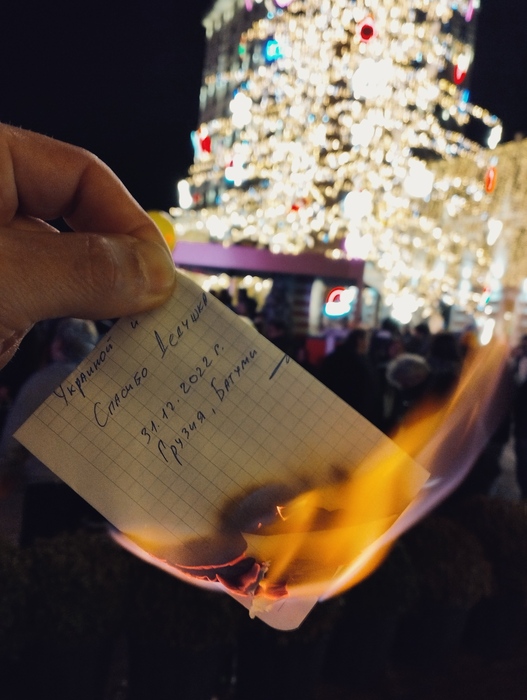 Украиной и
Спасибо Дедушка
31.12.2022 г.
Грузия, Батуми